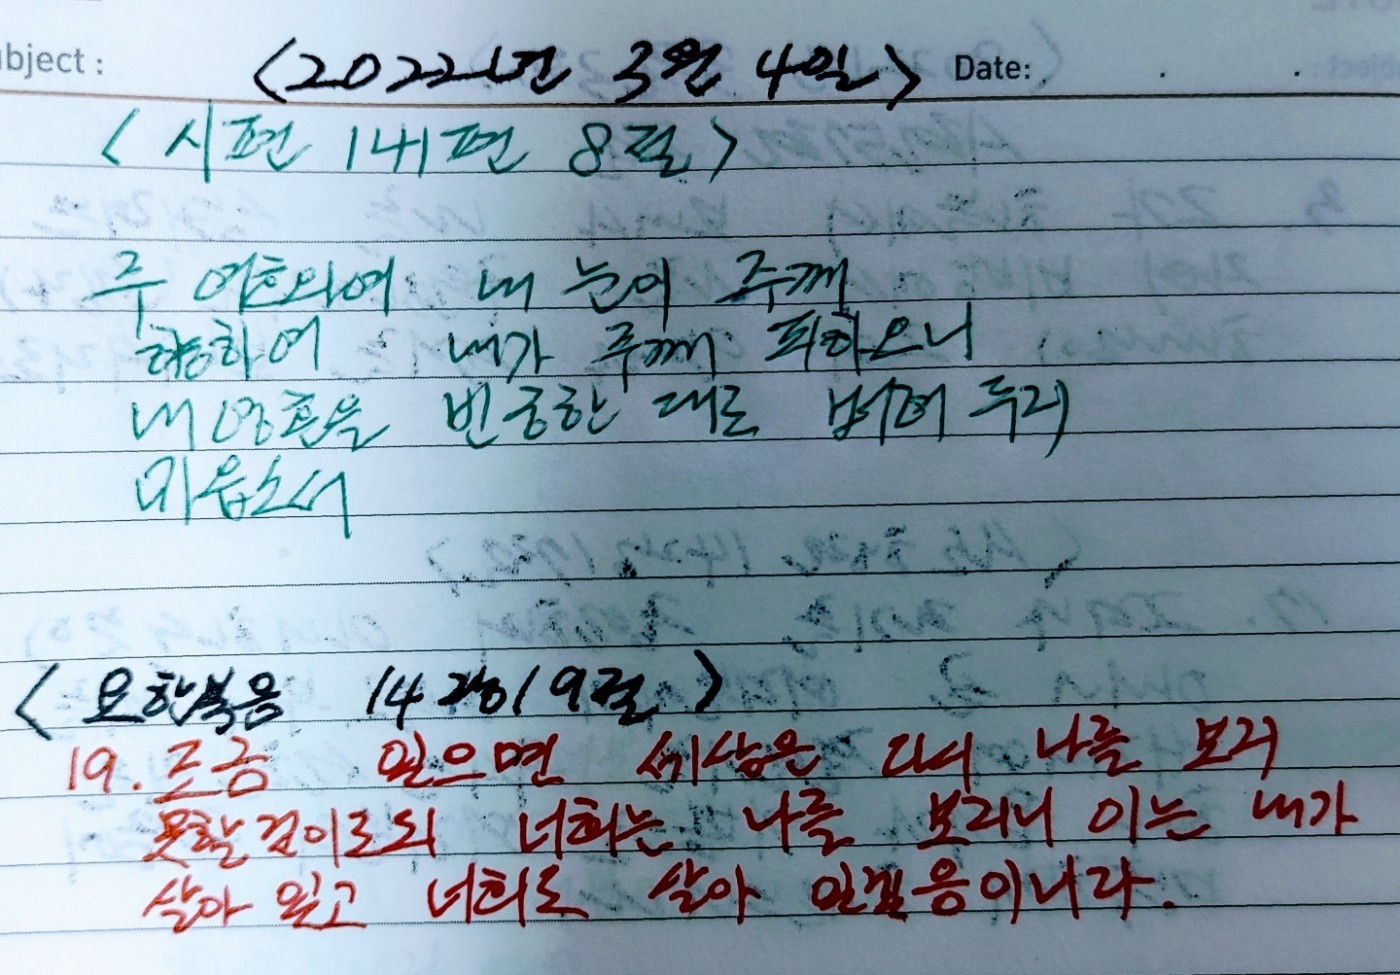 ubject : <2022년 3월 4일> Date: . .
<시편 141편 8절>
주 여호와여 내 눈이 주께
향하여 내가 주께 피하오니
내 영혼을 빈궁한 대로 버려 두지
마옵소서
<요한복음 14장 19절>
19. 조금 있으면 세상은 다시 나를 보지
못할 것이로되 너희는 나를 보리니 이는 내가
살아 있고 너희도 살아 있겠음이니라.